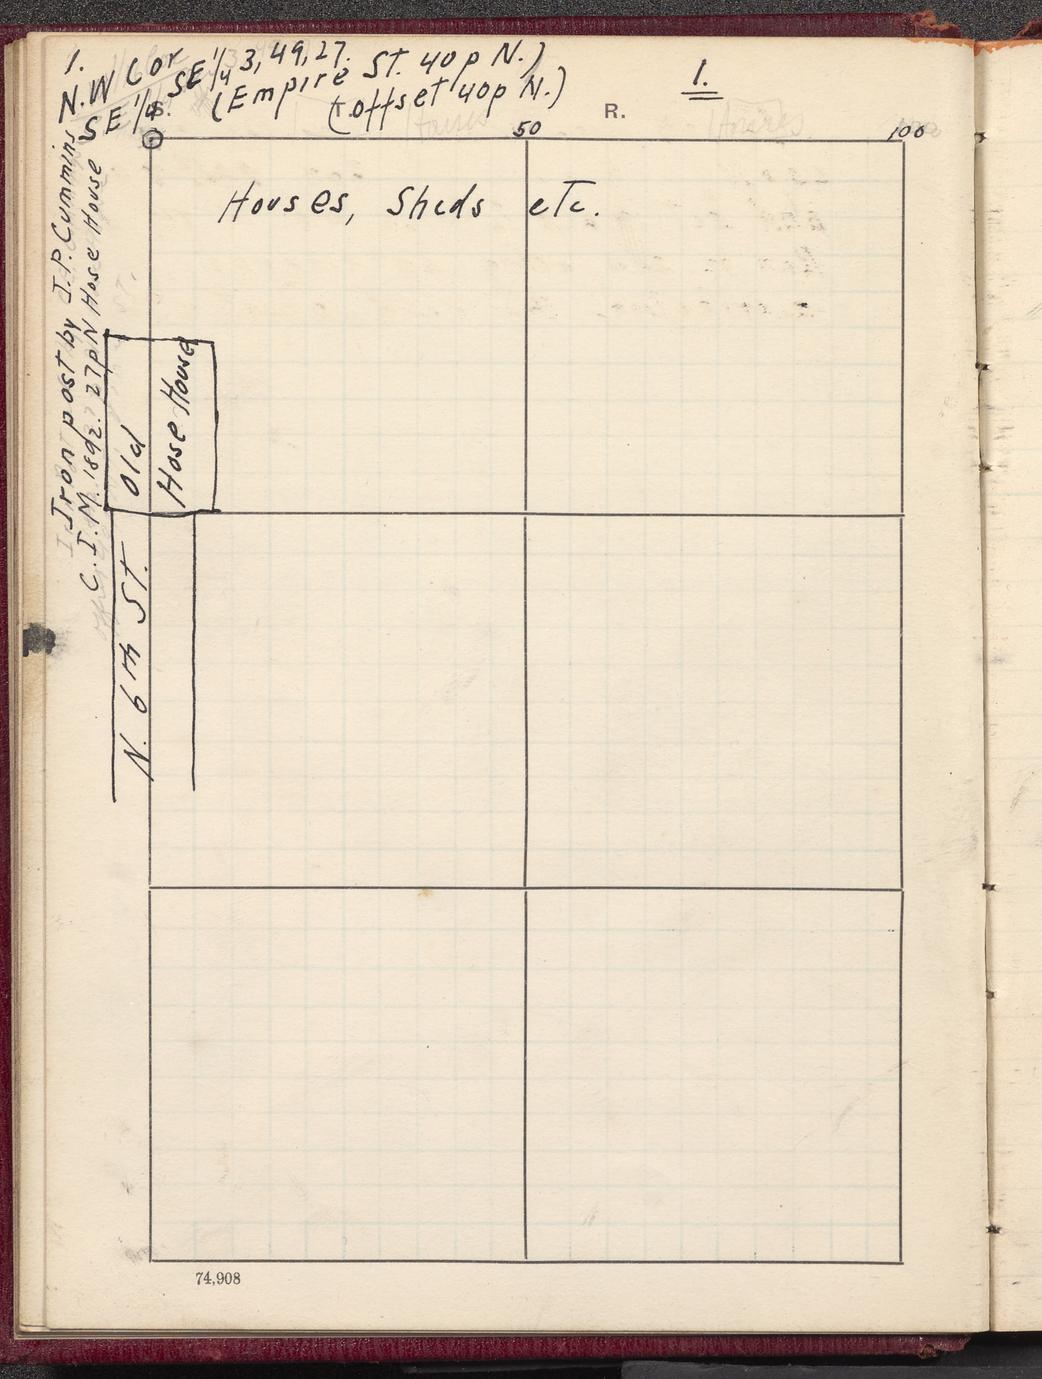 1.
N.W Cor
SE 1/4 SE 1/4 3, 49, 27.
(Empire St. 40p N.)
(offset 40p N.)
1.
S.
R.
50
100
Iron post by J.P. Cummins
C. I. M. 1892. 27p N Hose House
Houses, Sheds etc.
Old
Hose House
N. 6th St.
74,908